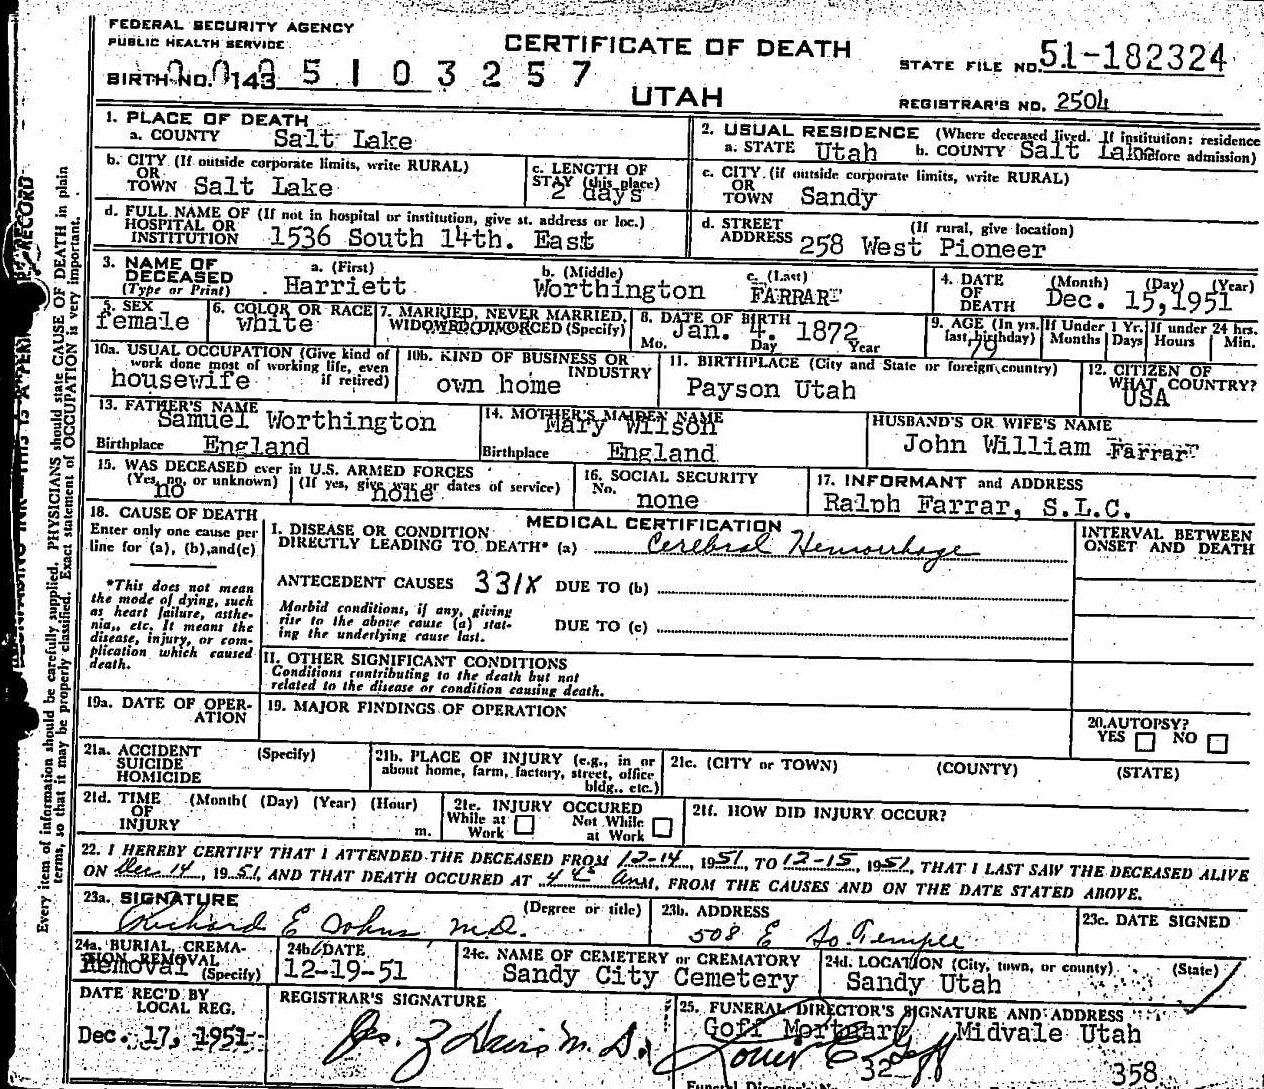 FEDERAL SECURITY AGENCY
PUBLIC HEALTH SERVICE
CERTIFICATE OF DEATH
STATE FILE NO. 51-182324
BIRTH NO. 143 5103257
UTAH
REGISTRAR'S NO. 2504
1. PLACE OF DEATH
a. COUNTY Salt Lake
2. USUAL RESIDENCE (Where deceased lived. If institution: residence before admission)
a. STATE Utah b. COUNTY Salt Lake
b. CITY (If outside corporate limits, write RURAL)
OR
TOWN Salt Lake
c. LENGTH OF
STAY (this place)
2 days
c. CITY (if outside corporate limits, write RURAL)
OR
TOWN Sandy
d. FULL NAME OF (If not in hospital or institution, give st. address or loc.)
HOSPITAL OR
INSTITUTION 1536 South 14th. East
d. STREET (If rural, give location)
ADDRESS 258 West Pioneer
3. NAME OF
DECEASED
(Type or Print)
a. (First)
Harriett
b. (Middle)
Worthington
c. (Last)
FARRAR
4. DATE
OF
DEATH
(Month) (Day) (Year)
Dec. 15, 1951
5. SEX
female
6. COLOR OR RACE
white
7. MARRIED, NEVER MARRIED,
WIDOWED, DIVORCED (Specify)
8. DATE OF BIRTH
Jan. 4. 1872
Mo. Day Year
9. AGE (In yrs.
last birthday)
79
If Under 1 Yr.
Months Days
If under 24 hrs.
Hours Min.
10a. USUAL OCCUPATION (Give kind of
work done most of working life, even
if retired)
housewife
10b. KIND OF BUSINESS OR
INDUSTRY
own home
11. BIRTHPLACE (City and State or foreign country)
Payson Utah
12. CITIZEN OF
WHAT COUNTRY?
USA
13. FATHER'S NAME
Samuel Worthington
Birthplace England
14. MOTHER'S MAIDEN NAME
Mary Wilson
Birthplace England
HUSBAND'S OR WIFE'S NAME
John William Farrar
15. WAS DECEASED ever in U.S. ARMED FORCES
(Yes, no, or unknown) (If yes, give war or dates of service)
no none
16. SOCIAL SECURITY
No. none
17. INFORMANT and ADDRESS
Ralph Farrar, S.L.C.
18. CAUSE OF DEATH
Enter only one cause per
line for (a), (b), and (c)
*This does not mean
the mode of dying, such
as heart failure, asthe-
nia,, etc. It means the
disease, injury, or com-
plication which caused
death.
MEDICAL CERTIFICATION
I. DISEASE OR CONDITION
DIRECTLY LEADING TO DEATH* (a) Cerebral Hemorrhage
ANTECEDENT CAUSES 331X DUE TO (b)
Morbid conditions, if any, giving
rise to the above cause (a) stat-
ing the underlying cause last.
DUE TO (c)
II. OTHER SIGNIFICANT CONDITIONS
Conditions contributing to the death but not
related to the disease or condition causing death.
INTERVAL BETWEEN
ONSET AND DEATH
19a. DATE OF OPER-
ATION
19. MAJOR FINDINGS OF OPERATION
20. AUTOPSY?
YES NO
21a. ACCIDENT (Specify)
SUICIDE
HOMICIDE
21b. PLACE OF INJURY (e.g., in or
about home, farm, factory, street, office
bldg., etc.)
21c. (CITY or TOWN) (COUNTY) (STATE)
21d. TIME (Month( (Day) (Year) (Hour)
OF
INJURY m.
21e. INJURY OCCURED
While at Work Not While at Work
21f. HOW DID INJURY OCCUR?
22. I HEREBY CERTIFY THAT I ATTENDED THE DECEASED FROM 12-14, 1951, TO 12-15, 1951, THAT I LAST SAW THE DECEASED ALIVE
ON Dec 14, 1951, AND THAT DEATH OCCURED AT 4 45 am., FROM THE CAUSES AND ON THE DATE STATED ABOVE.
23a. SIGNATURE (Degree or title)
Richard E Johns, M.D.
23b. ADDRESS
508 E So. Temple
23c. DATE SIGNED
24a. BURIAL, CREMA-
TION REMOVAL
Removal (Specify)
24b. DATE
12-19-51
24c. NAME OF CEMETERY or CREMATORY
Sandy City Cemetery
24d. LOCATION (City, town, or county) (State)
Sandy Utah
DATE REC'D BY
LOCAL REG.
Dec. 17, 1951
REGISTRAR'S SIGNATURE
25. FUNERAL DIRECTOR'S SIGNATURE AND ADDRESS
Goff Mortuary Midvale Utah
32
358
Every item of information should be carefully supplied. PHYSICIANS should state CAUSE OF DEATH in plain
terms, so that it may be properly classified. Exact statement of OCCUPATION is very important.